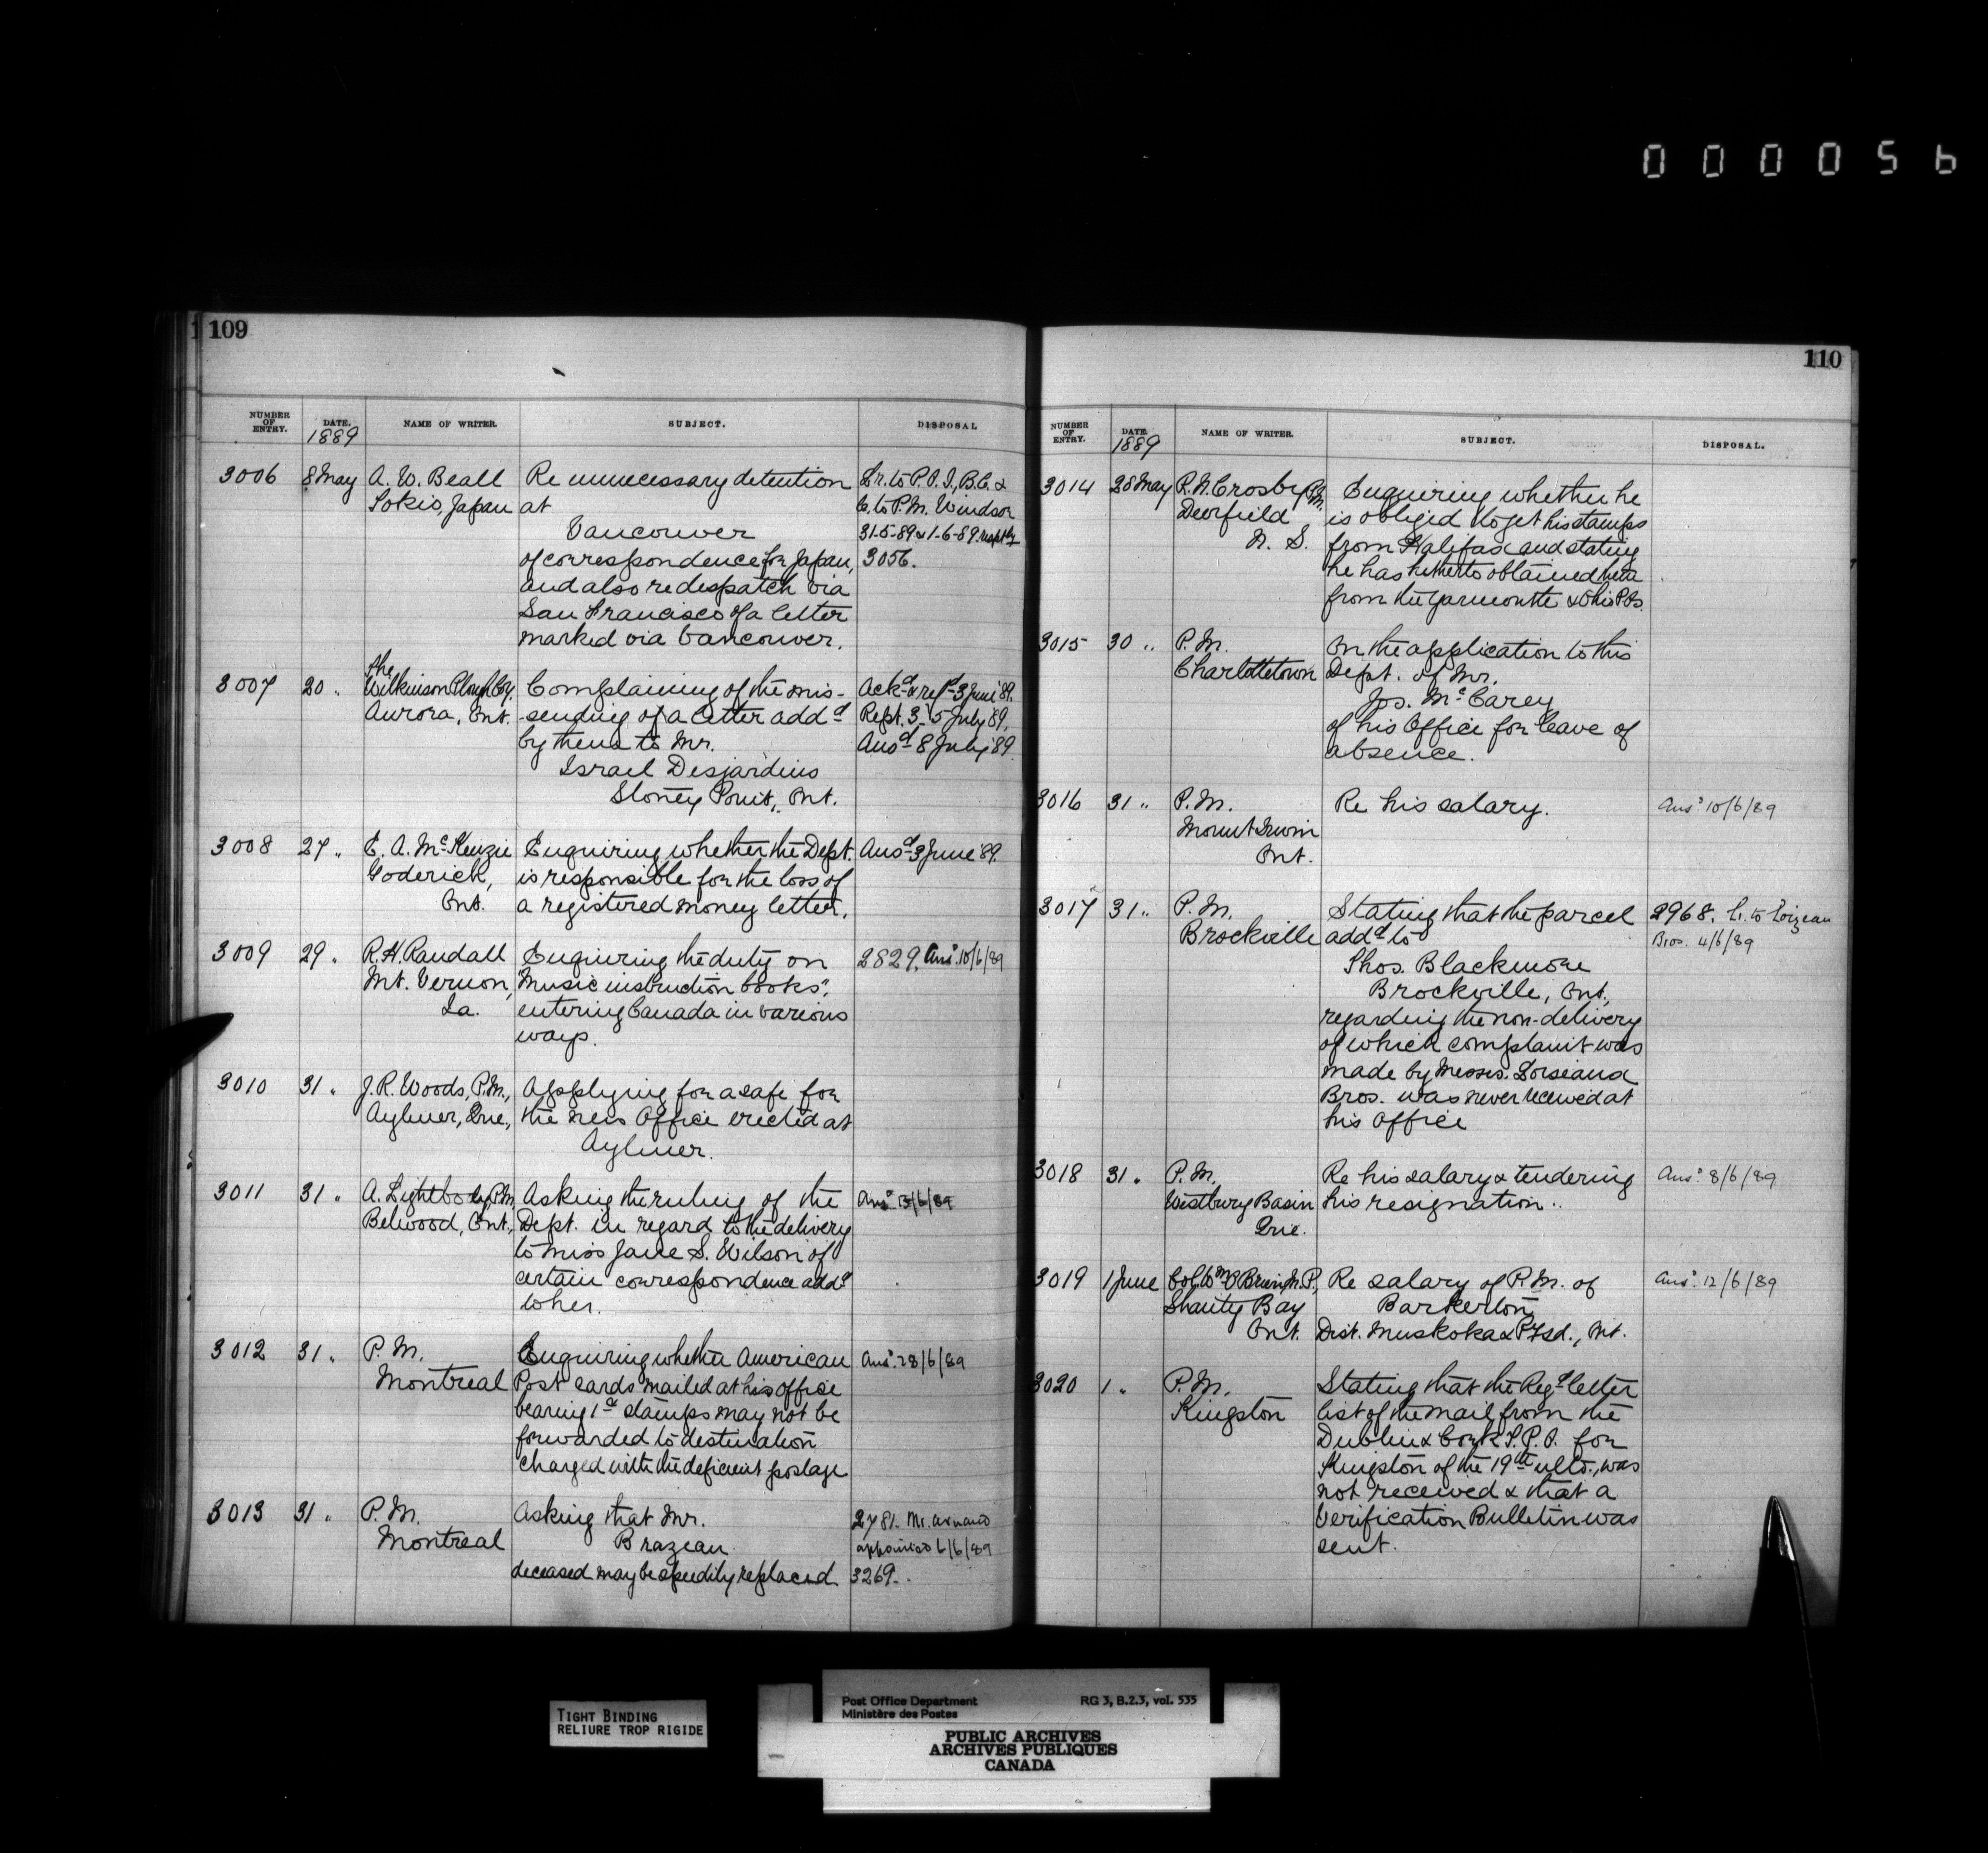 000056
109
NUMBER OF ENTRY. DATE. 1889 NAME OF WRITER. SUBJECT. DISPOSAL
3006 8 May A. W. Beall Re unnecessary detention Lr. to P.O.I., B.C. &
Tokio, Japan at C. to P.M. Windsor
Vancouver 31-5-89 & 1-6-89 resptly
of correspondence for Japan, 3056.
and also redespatch via
San Francisco of a letter
marked via Vancouver.
3007 20 " The Wilkinson Plough Coy. Complaining of the mis- Ackd & refd 3 June '89.
Aurora, Ont. -sending of a letter addd Rept. 3-5 July '89,
by them to Mr. Ansd 8 July '89
Israel Desjardins
Stoney Point, Ont.
3008 27 " E. A. McKenzie Enquiring whether the Dept. Ansd 3 June '89.
Goderich, is responsible for the loss of
Ont. a registered money letter.
3009 29 " R. H. Randall Enquiring the duty on 2829. Ansd 10/6/89
Mt. Vernon, "Music instruction books",
Ia. entering Canada in various
ways.
3010 31 " J. R. Woods, P.M., Applying for a safe for
Aylmer, Que., the new Office erected at
Aylmer.
3011 31 " A. Lightbody, P.M. Asking the ruling of the Ansd 13/6/89
Belwood, Ont., Dept. in regard to the delivery
to Miss Jane S. Wilson of
certain correspondence addd
to her.
3012 31 " P. M. Enquiring whether American Ansd 28/6/89
Montreal Post cards mailed at his office
bearing 1c stamps may not be
forwarded to destination
charged with the deficient postage
3013 31 " P. M. Asking that Mr. 2781. Mr.
Montreal Brazeau appointed 6/6/89
deceased may be speedily replaced 3269.
110
NUMBER OF ENTRY. DATE. 1889 NAME OF WRITER. SUBJECT. DISPOSAL.
3014 28 May R. N. Crosby P.M. Enquiring whether he
Deerfield is obliged to get his stamps
N. S. from Halifax and stating
he has hitherto obtained them
from the Yarmouth & Ohio P.Os.
3015 30 " P. M. On the application to this
Charlottetown Dept. of Mr.
Jos. McCarey
of his Office for leave of
absence.
3016 31 " P. M. Re his salary. Ansd 10/6/89
Mount Irwin
Ont.
3017 31 " P. M. Stating that the parcel 2968. L. to Loizeau
Brockville addd to Bros. 4/6/89
Thos. Blackmore
Brockville, Ont.,
regarding the non-delivery
of which complaint was
made by Messrs.
Bros. was never received at
his Office
3018 31 " P. M. Re his salary & tendering Ansd 8/6/89
Westbury Basin his resignation.
Que.
3019 1 June Col. Wm O'Brien M.P., Re salary of P.M. of Ansd 12/6/89
Shanty Bay Barkerton,
Ont. Dist. Muskoka & P. Sd., Ont.
3020 1 " P. M. Stating that the Regd letter
Kingston list of the mail from the
Dublin & Cork T.P.O. for
Kingston of the 19th ulto., was
not received & that a
Verification Bulletin was
sent.
TIGHT BINDING
RELIURE TROP RIGIDE
Post Office Department RG 3, B.2.3, vol. 535
Ministère des Postes
PUBLIC ARCHIVES
ARCHIVES PUBLIQUES
CANADA